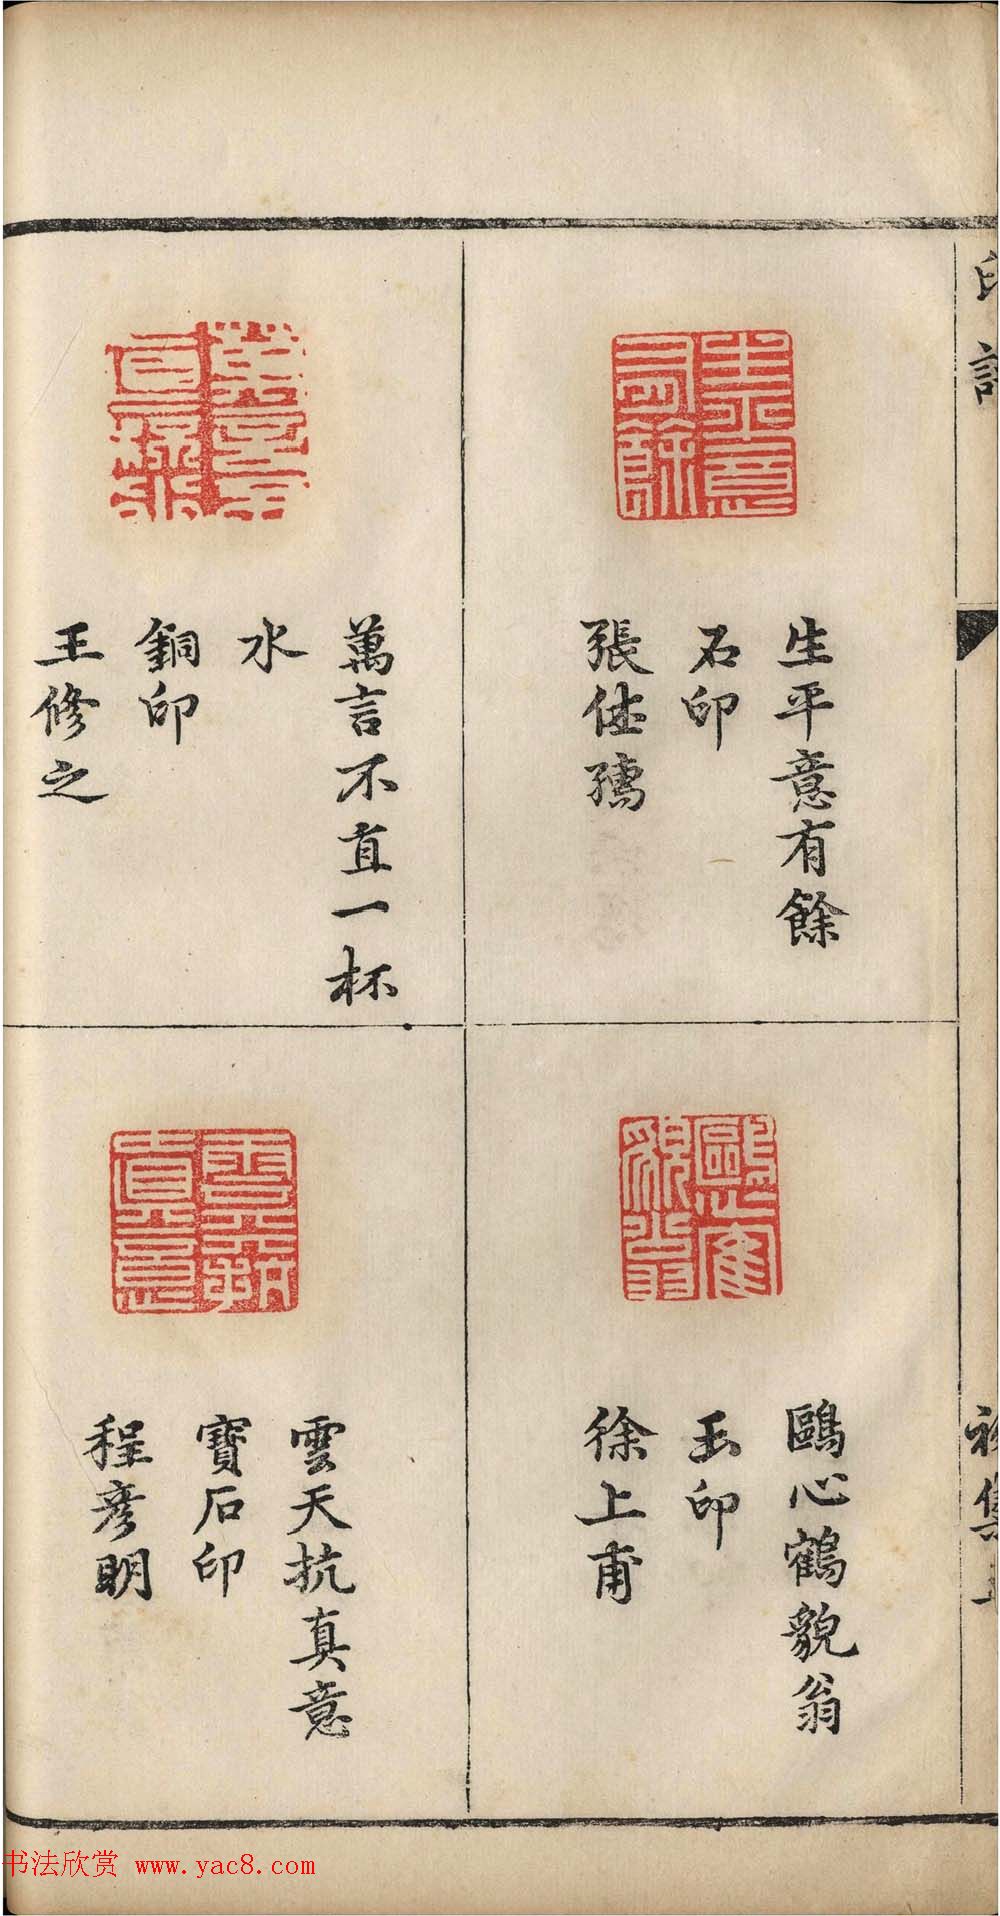 生平意有餘
石印
張
鷗心鶴貌翁
玉印
徐上甫
萬言不直一杯
水
銅印
王修之
雲天抗真意
寶石印
程彥明
书法欣赏 www.yac8.com